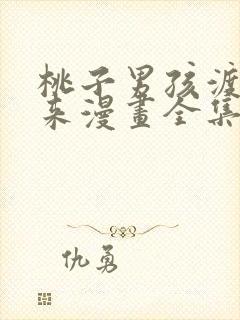 桃子男孩渡
来漫畫全集
仇勇